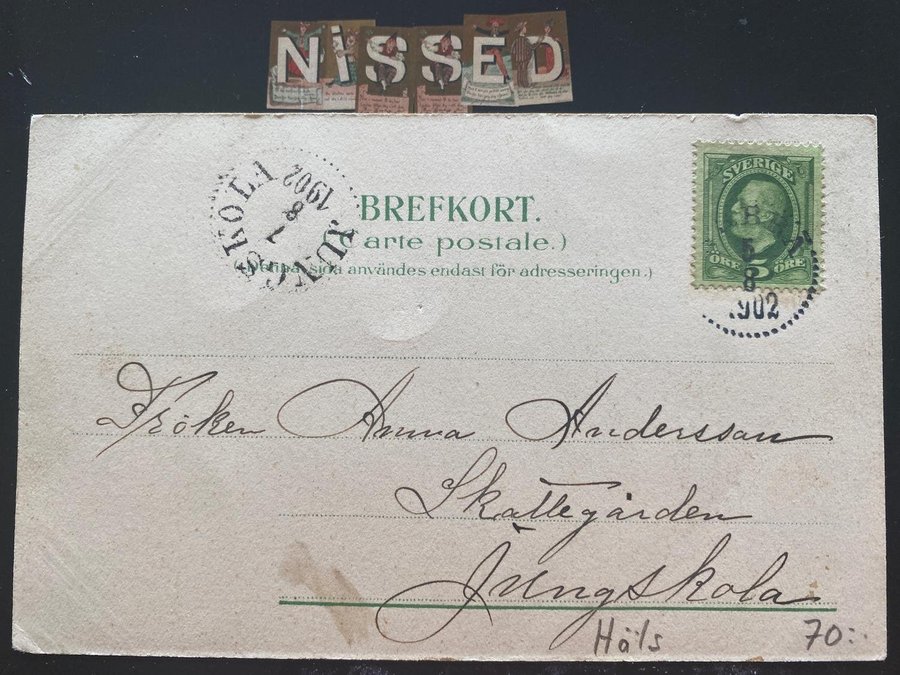 NISSED
BREFKORT.
(Carte postale.)
(Denna sida användes endast för adresseringen.)
LJUNGSKOLE
7
8
1902
SVERIGE
ÖRE 5 ÖRE
5
8
1902
Fröken Anna Andersson
Skattegården
Jungskola
Häls 70:-